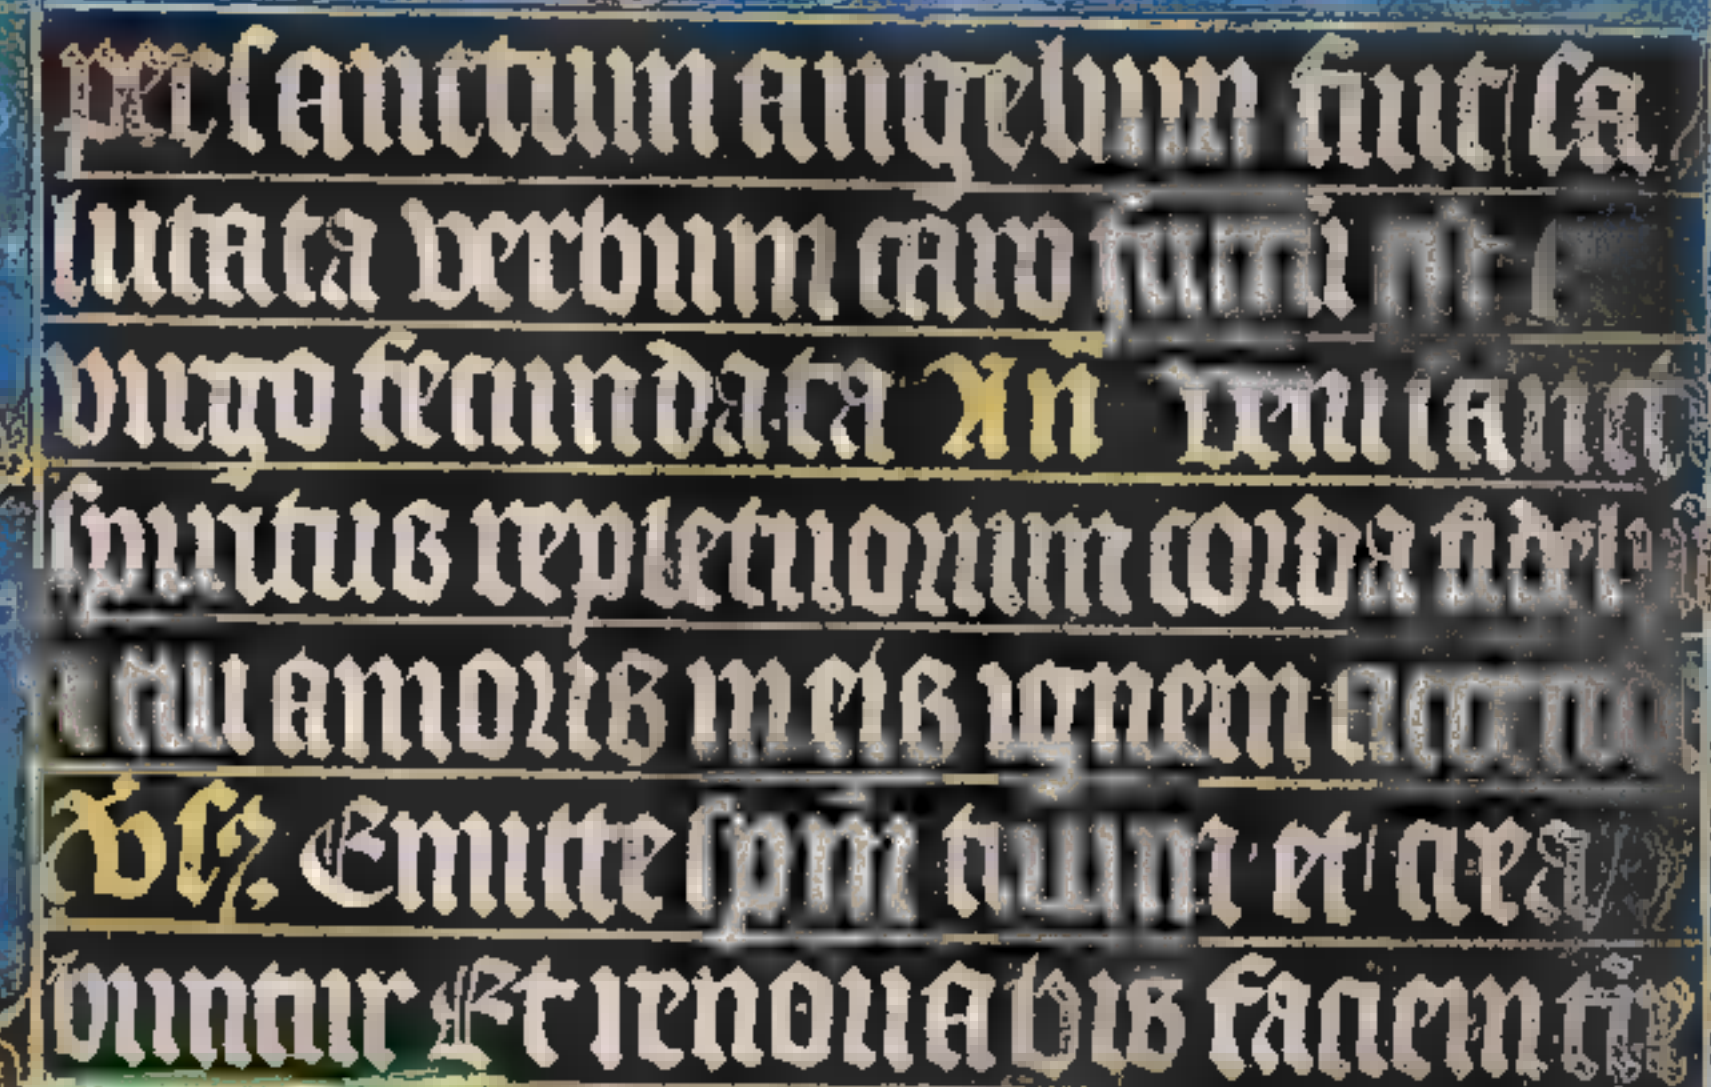 per sanctum angelum fiut sa
lutata verbum caro sumi
virgo fecundata An veni sanct
spiritus reple tuorum corda fideli
tui amoris in eis ignem accen
Vs. Emitte spm tuum et crea
buntur Et renovabis faciem